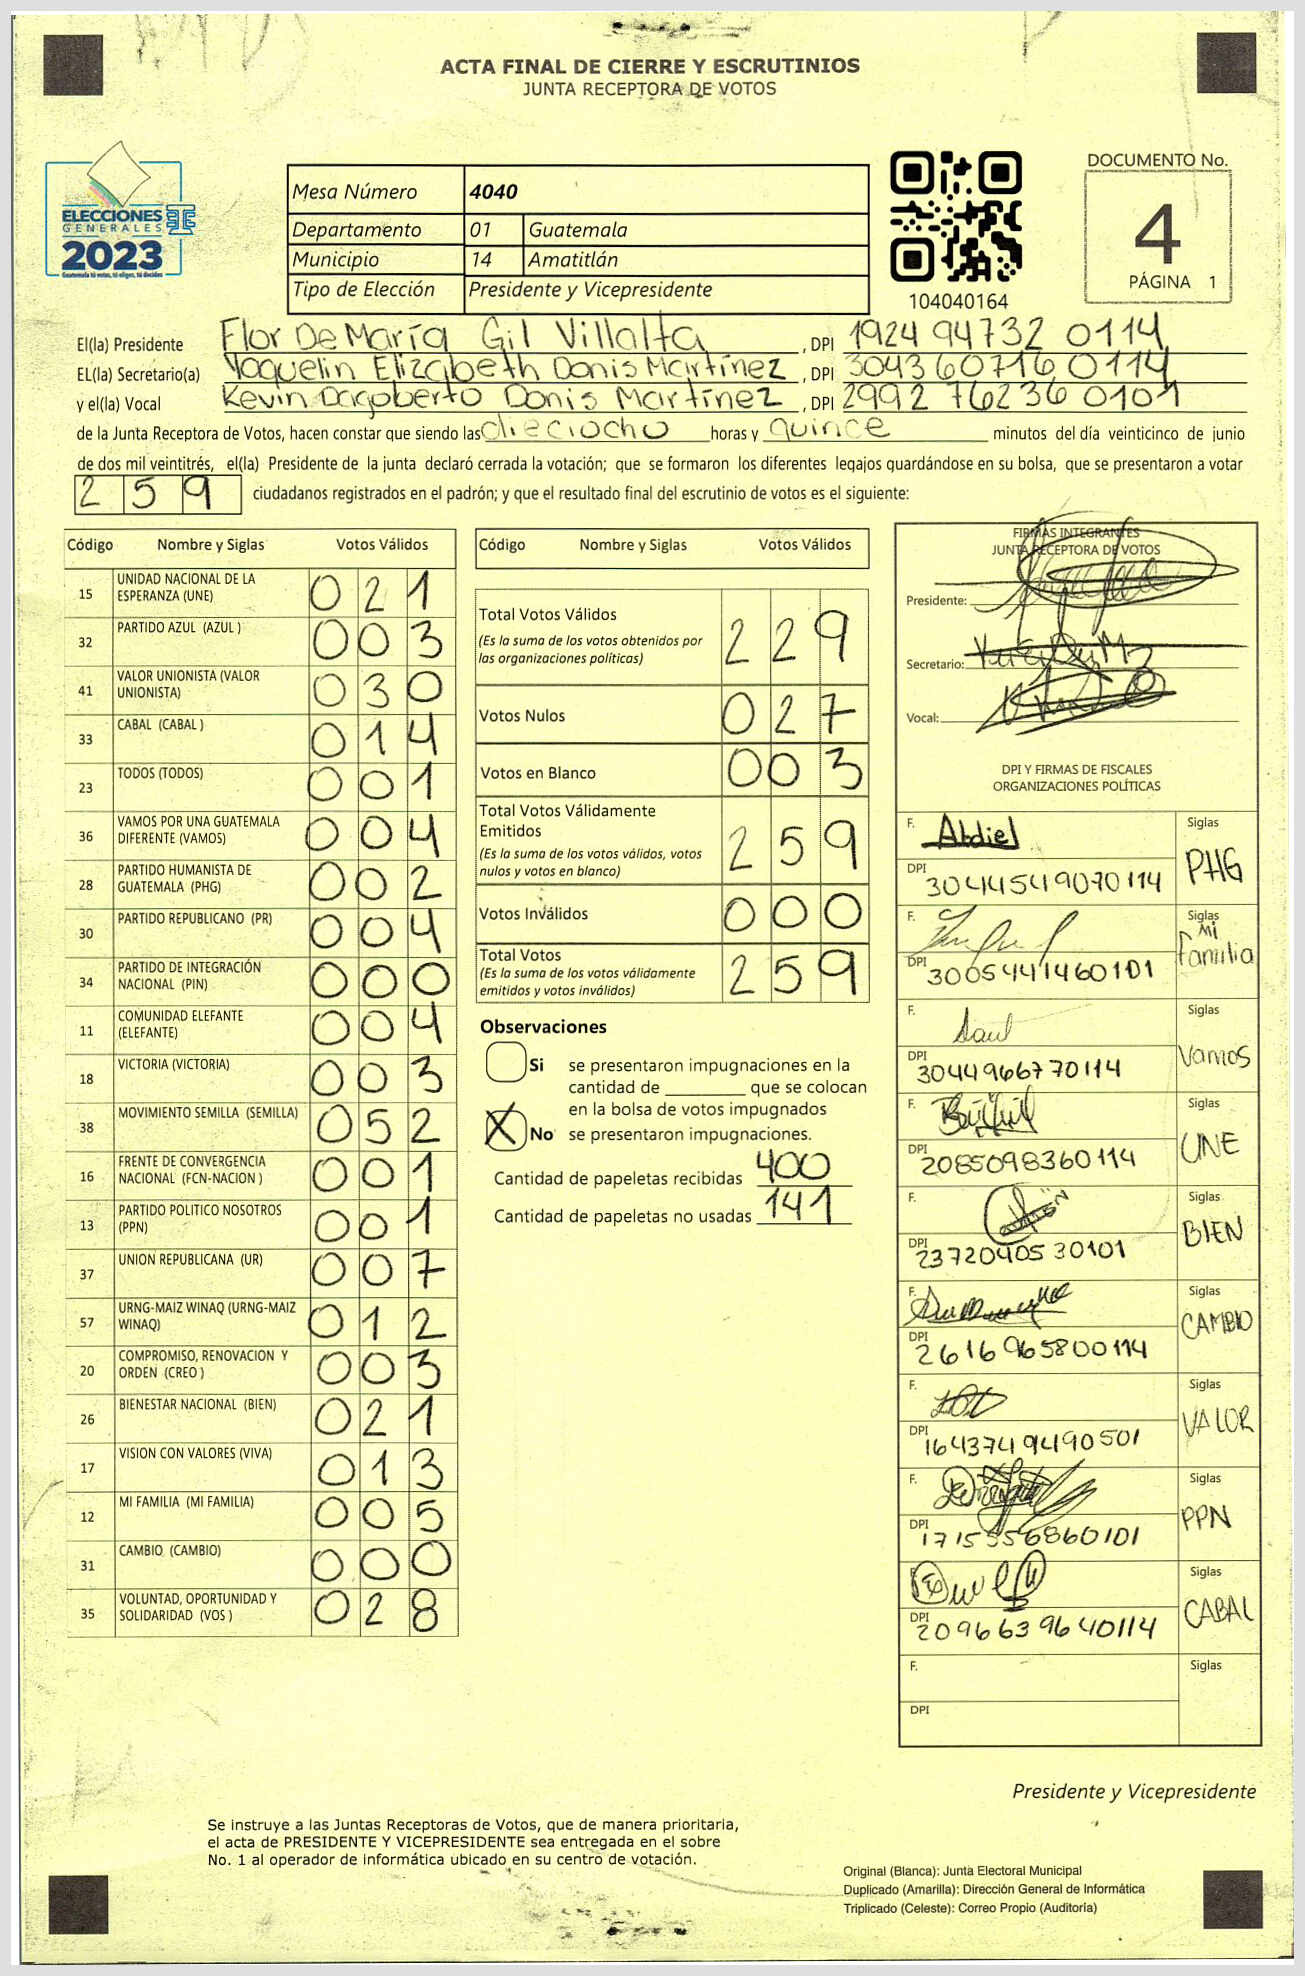 ACTA FINAL DE CIERRE Y ESCRUTINIOS
JUNTA RECEPTORA DE VOTOS
ELECCIONES
GENERALES
2023
Guatemala tú votas, tú eliges, tú decides
Mesa Número 4040
Departamento 01 Guatemala
Municipio 14 Amatitlán
Tipo de Elección Presidente y Vicepresidente
104040164
DOCUMENTO No.
4
PÁGINA 1
El(la) Presidente Flor De María Gil Villalta, DPI 1924 94732 0114
EL(la) Secretario(a) Yaquelin Elizabeth Donis Martínez, DPI 3043 60716 0114
y el(la) Vocal Kevin Dagoberto Donis Martínez, DPI 2992 76236 0101
de la Junta Receptora de Votos, hacen constar que siendo las dieciocho horas y quince minutos del día veinticinco de junio
de dos mil veintitrés, el(la) Presidente de la junta declaró cerrada la votación; que se formaron los diferentes legajos guardándose en su bolsa, que se presentaron a votar
259 ciudadanos registrados en el padrón; y que el resultado final del escrutinio de votos es el siguiente:
Código Nombre y Siglas Votos Válidos
15 UNIDAD NACIONAL DE LA ESPERANZA (UNE) 021
32 PARTIDO AZUL (AZUL ) 003
41 VALOR UNIONISTA (VALOR UNIONISTA) 030
33 CABAL (CABAL ) 014
23 TODOS (TODOS) 001
36 VAMOS POR UNA GUATEMALA DIFERENTE (VAMOS) 004
28 PARTIDO HUMANISTA DE GUATEMALA (PHG) 002
30 PARTIDO REPUBLICANO (PR) 004
34 PARTIDO DE INTEGRACIÓN NACIONAL (PIN) 000
11 COMUNIDAD ELEFANTE (ELEFANTE) 004
18 VICTORIA (VICTORIA) 003
38 MOVIMIENTO SEMILLA (SEMILLA) 052
16 FRENTE DE CONVERGENCIA NACIONAL (FCN-NACION ) 001
13 PARTIDO POLITICO NOSOTROS (PPN) 001
37 UNION REPUBLICANA (UR) 007
57 URNG-MAIZ WINAQ (URNG-MAIZ WINAQ) 012
20 COMPROMISO, RENOVACION Y ORDEN (CREO ) 003
26 BIENESTAR NACIONAL (BIEN) 021
17 VISION CON VALORES (VIVA) 013
12 MI FAMILIA (MI FAMILIA) 005
31 CAMBIO (CAMBIO) 000
35 VOLUNTAD, OPORTUNIDAD Y SOLIDARIDAD (VOS ) 028
Código Nombre y Siglas Votos Válidos
Total Votos Válidos 229
(Es la suma de los votos obtenidos por
las organizaciones politicas)
Votos Nulos 027
Votos en Blanco 003
Total Votos Válidamente
Emitidos 259
(Es la suma de los votos válidos, votos
nulos y votos en blanco)
Votos Inválidos 000
Total Votos 259
(Es la suma de los votos válidamente
emitidos y votos inválidos)
Observaciones
Si se presentaron impugnaciones en la
cantidad de ________ que se colocan
en la bolsa de votos impugnados
X No se presentaron impugnaciones.
Cantidad de papeletas recibidas 400
Cantidad de papeletas no usadas 141
FIRMAS INTEGRANTES
JUNTA RECEPTORA DE VOTOS
Presidente:
Secretario:
Vocal:
DPI Y FIRMAS DE FISCALES
ORGANIZACIONES POLÍTICAS
F. Abdiel Siglas PHG
DPI 3044549070114
F. Siglas Mi Familia
DPI 3005441460101
F. Saul Siglas Vamos
DPI 3044966770114
F. Siglas UNE
DPI 2085098360114
F. Siglas BIEN
DPI 2372040530101
F. Siglas CAMBIO
DPI 2616965800114
F. Siglas VALOR
DPI 1643749490501
F. Siglas PPN
DPI 1715556860101
F. Siglas CABAL
DPI 2096639640114
F. Siglas
DPI
Presidente y Vicepresidente
Se instruye a las Juntas Receptoras de Votos, que de manera prioritaria,
el acta de PRESIDENTE Y VICEPRESIDENTE sea entregada en el sobre
No. 1 al operador de informática ubicado en su centro de votación.
Original (Blanca): Junta Electoral Municipal
Duplicado (Amarilla): Dirección General de Informática
Triplicado (Celeste): Correo Propio (Auditoria)